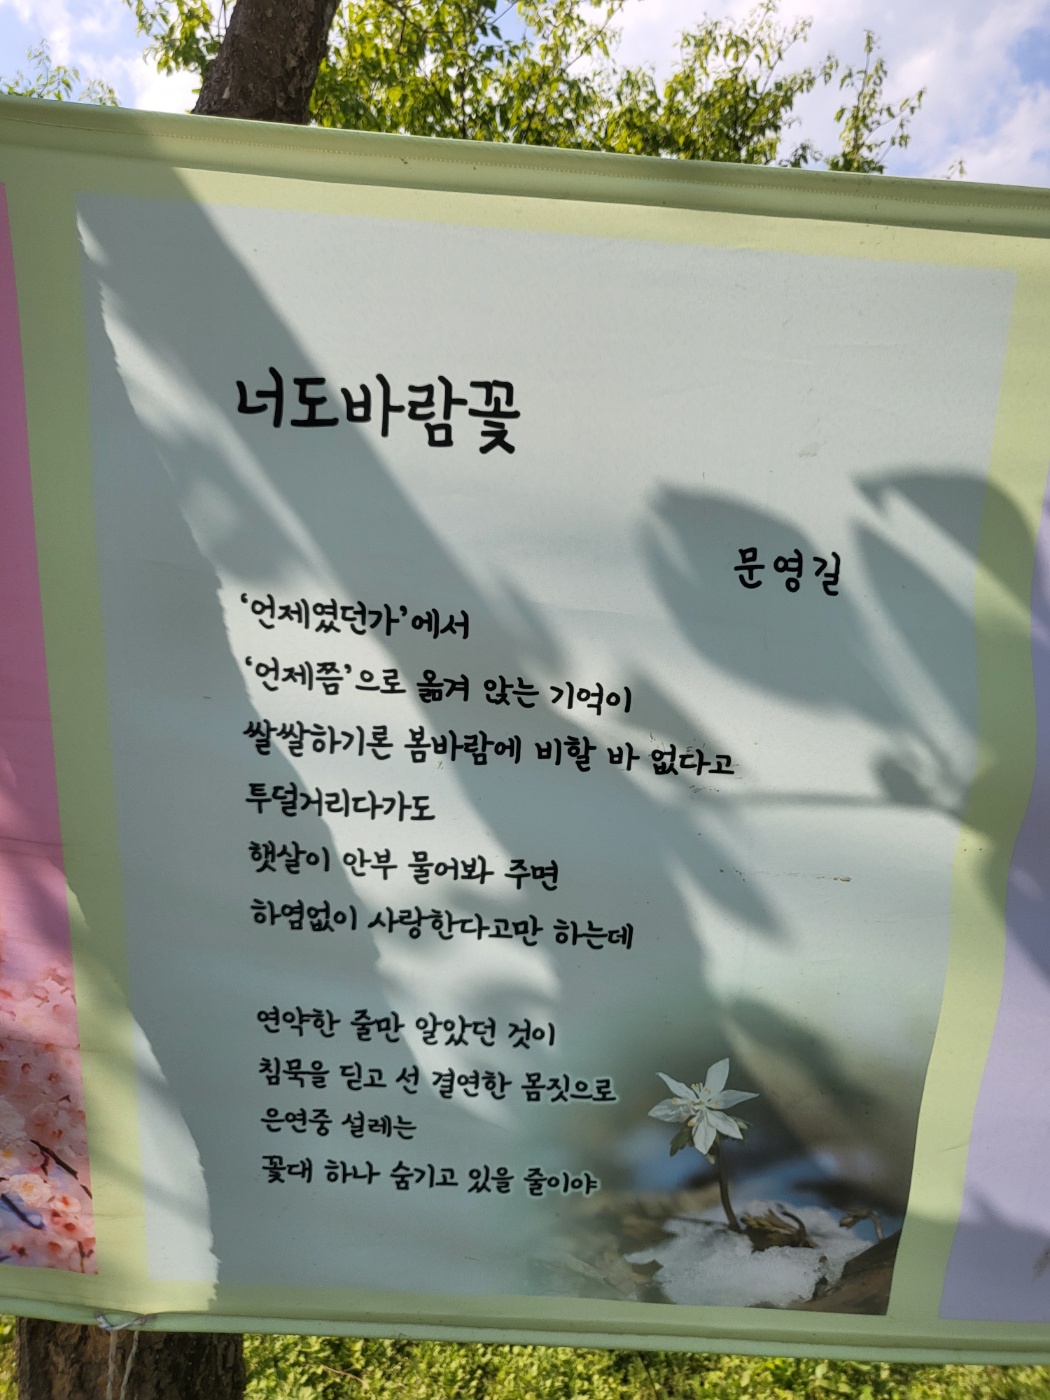 너도바람꽃
문영길
‘언제였던가’에서
‘언제쯤’으로 옮겨 앉는 기억이
쌀쌀하기론 봄바람에 비할 바 없다고
투덜거리다가도
햇살이 안부 물어봐 주면
하염없이 사랑한다고만 하는데
연약한 줄만 알았던 것이
침묵을 딛고 선 결연한 몸짓으로
은연중 설레는
꽃대 하나 숨기고 있을 줄이야